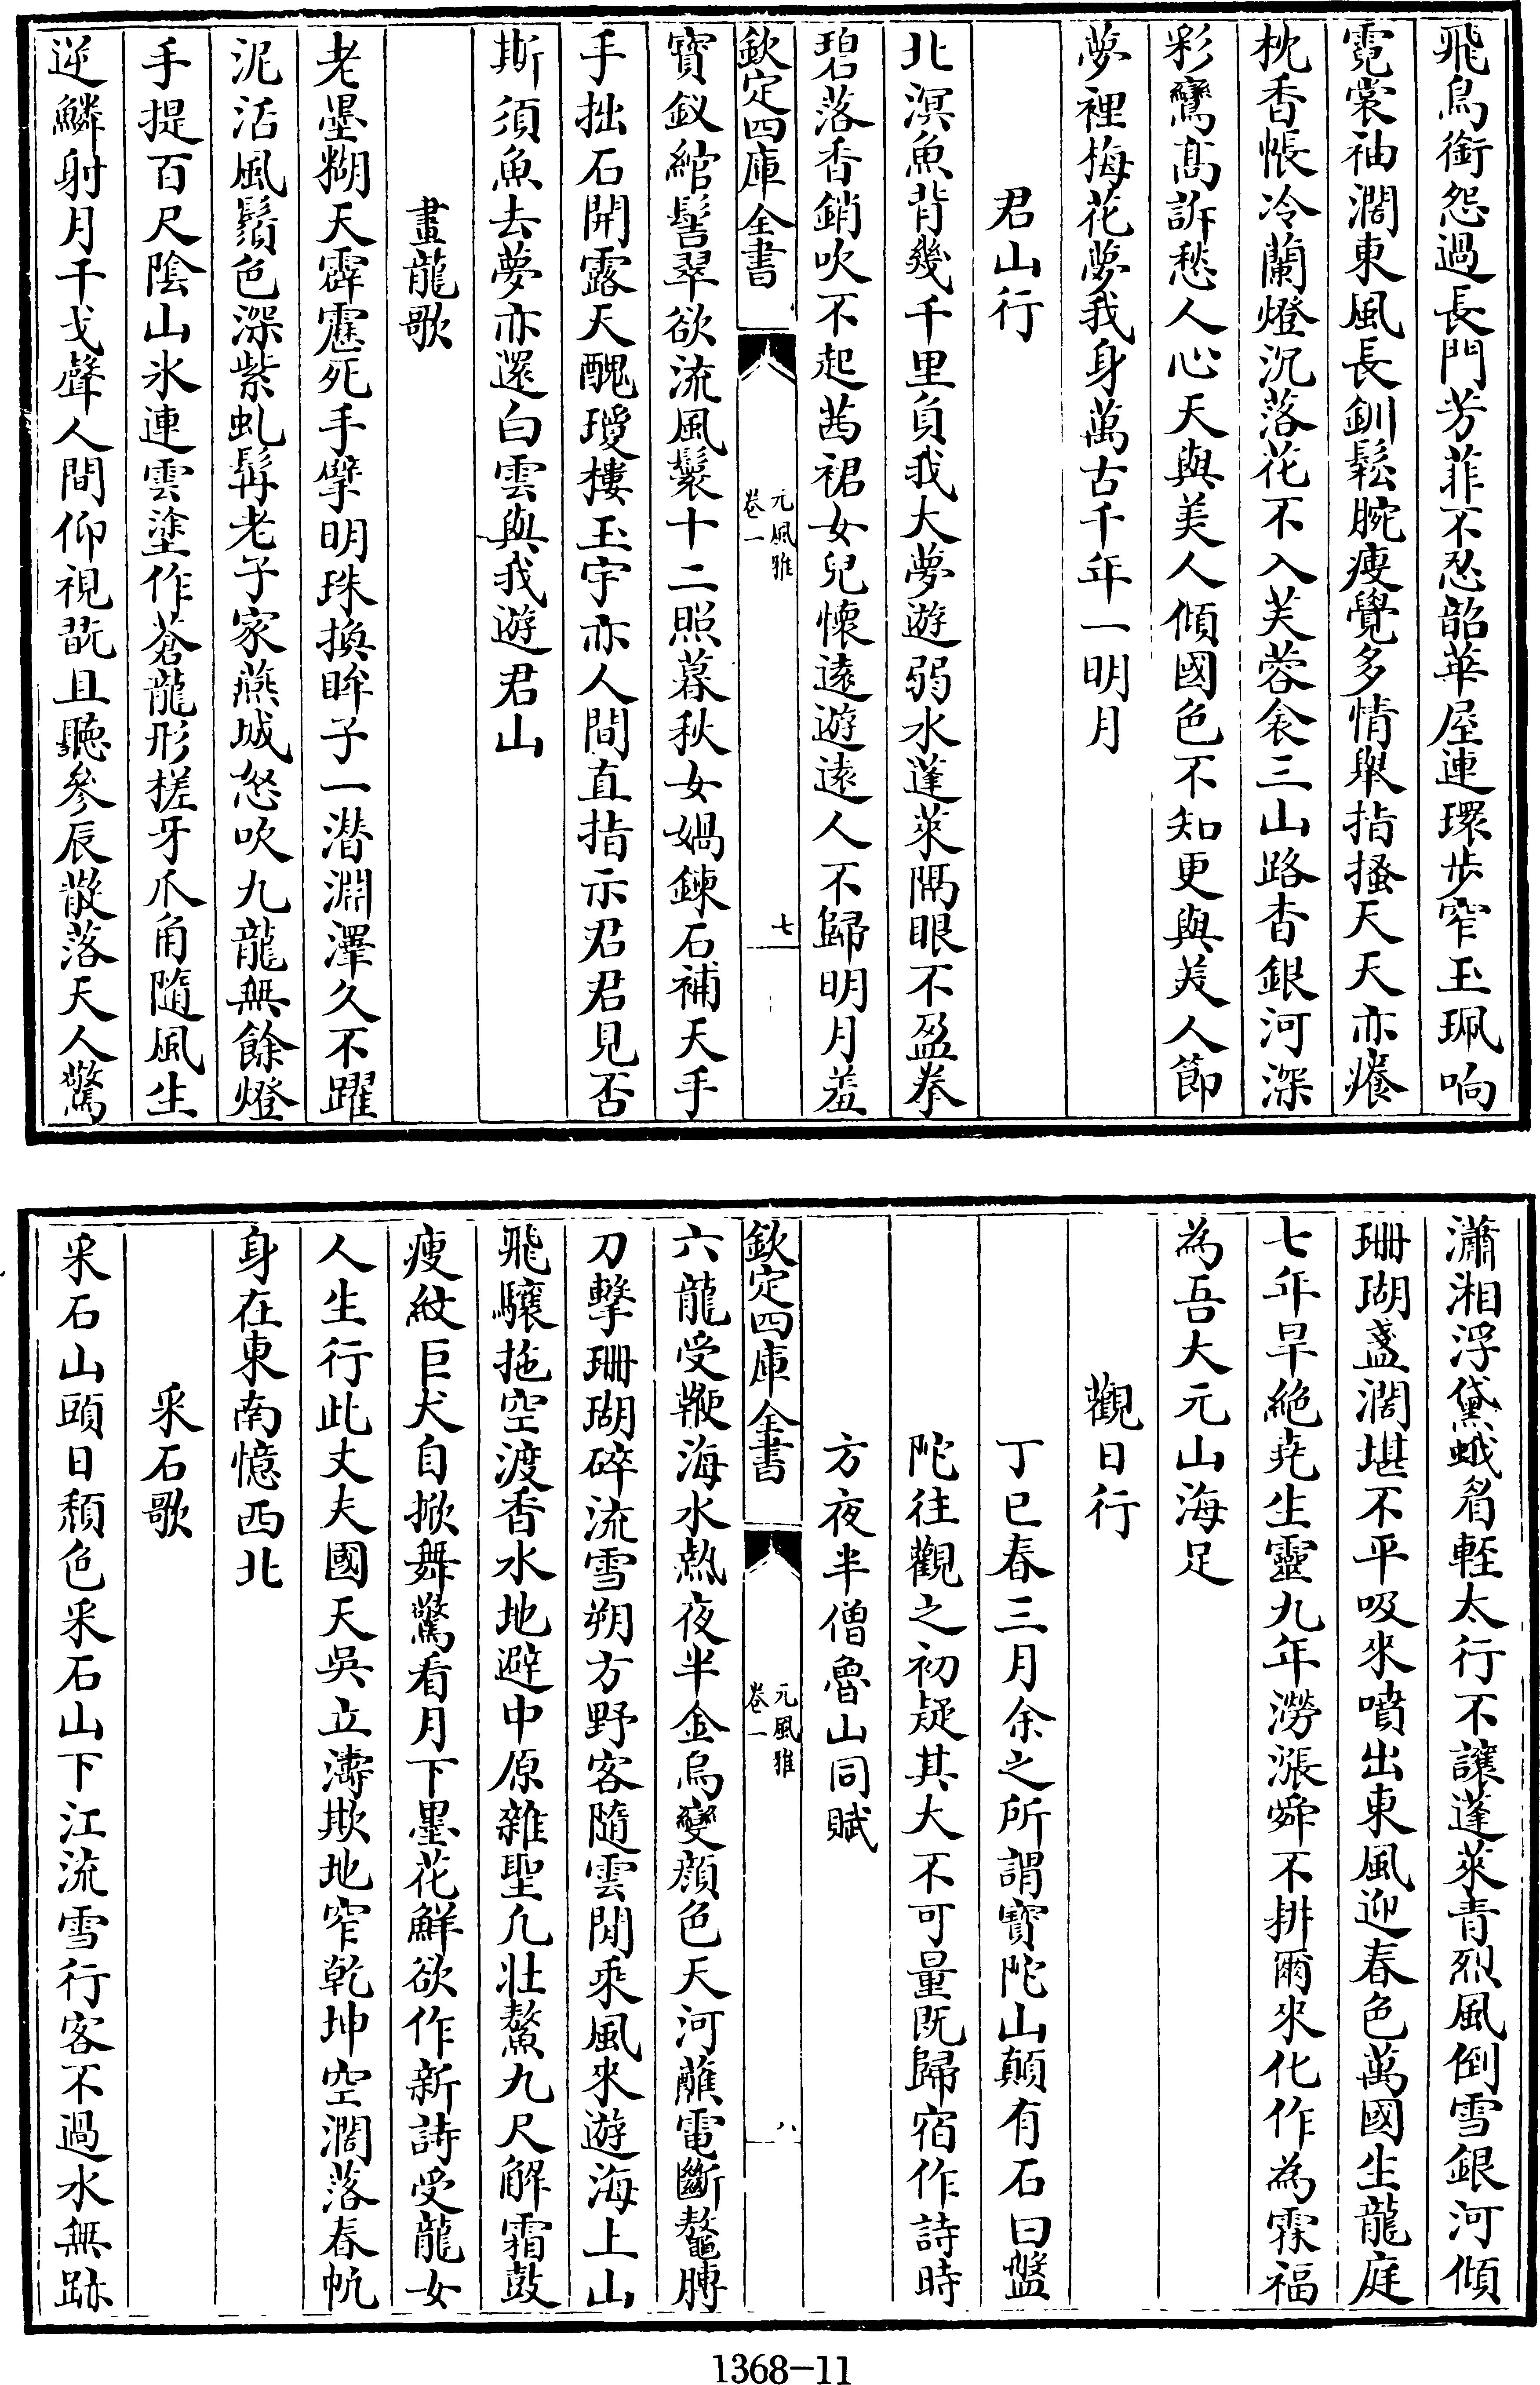 飛鳥銜怨過長門芳菲不忍韶華屋連環步窄玉珮响
霓裳袖濶東風長釧鬆腕瘦覺多情舉指搔天天亦癢
枕香帳冷蘭燈沉落花不入芙蓉衾三山路杳銀河深
彩鸞髙訴愁人心天與美人傾國色不知更與美人節
夢裡梅花夢我身萬古千年一明月
君山行
北溟魚背幾千里負我大夢遊弱水蓬萊隔眼不盈拳
碧落香銷吹不起茜裙女兒懷遠遊遠人不歸明月羞
欽定四庫全書
元風雅
卷一
七
寶釵綰髻翠欲流風鬟十二照暮秋女媧鍊石補天手
手拙石開露天醜璦樓玉宇亦人間直指示君君見否
斯須魚去夢亦還白雲與我遊君山
畫龍歌
老墨糊天霹靂死手擘明珠換眸子一潛淵澤久不躍
泥活風鬚色深紫虬髯老子家燕城怒吹九龍無餘燈
手提百尺陰山氷連雲塗作蒼龍形槎牙爪角隨風生
逆鱗射月干戈聲人間仰視翫且聽參辰散落天人驚
瀟湘浮黛蛾眉輕太行不讓蓬萊青烈風倒雪銀河傾
珊瑚盞濶堪不平吸來噴出東風迎春色萬國生龍庭
七年旱絶尭生靈九年澇漲舜不耕爾來化作為霖福
為吾大元山海足
觀日行
丁巳春三月余之所謂寶陀山顛有石曰盤
陀往觀之初疑其大不可量既歸宿作詩時
方夜半僧魯山同賦
欽定四庫全書
元風雅
卷一
八
六龍受鞭海水熱夜半金烏變顔色天河蘸電斷鼇膊
刀擊珊瑚碎流雪朔方野客隨雲閒乘風來遊海上山
飛驤拖空渡香水地避中原雜聖凡壯鰲九尺解霜鼓
瘦紋巨犬自掀舞驚看月下墨花鮮欲作新詩受龍女
人生行此丈夫國天吳立濤欺地窄乾坤空濶落春帆
身在東南憶西北
采石歌
采石山頭日頹色采石山下江流雪行客不過水無跡
1368-11